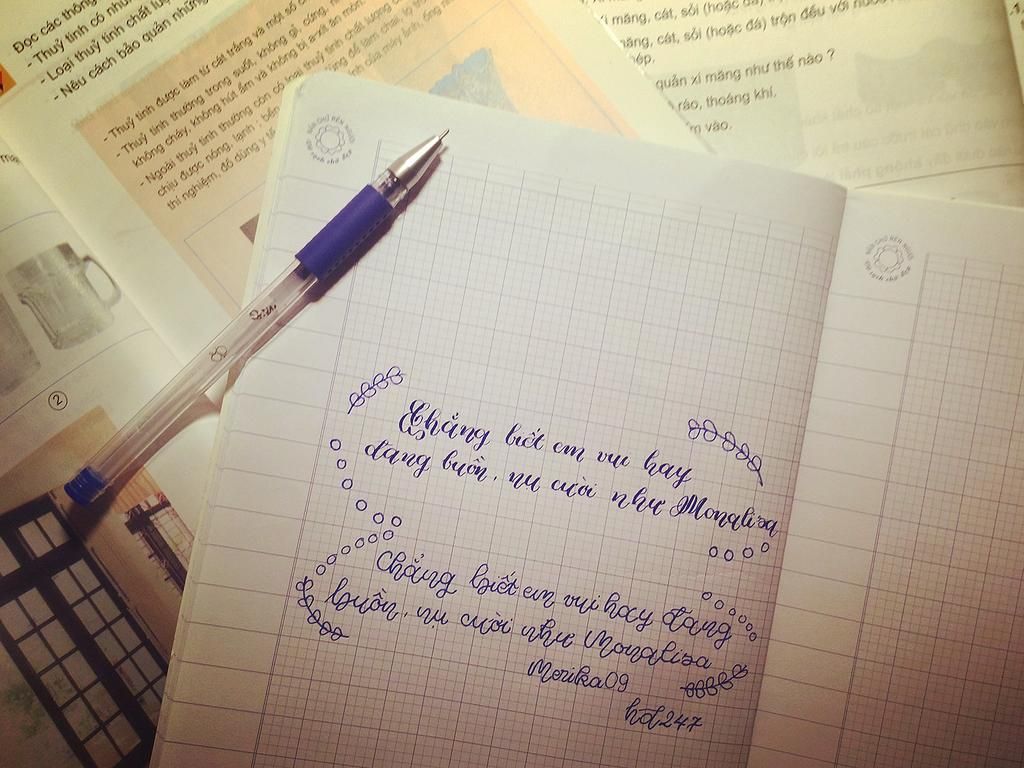 Đọc các thông
- Thuỷ tinh có nhữ
- Loại thuỷ tinh chất lượ
- Nêu cách bảo quản những
- Thuỷ tinh được làm từ cát trắng và một số c
- Thuỷ tinh thường trong suốt, không gỉ, cứng, n
không cháy, không hút ẩm và không bị a-xít ăn mòn.
- Ngoài thuỷ tinh thường còn có loại thuỷ tinh chất lượng c
chịu được nóng, lạnh ; bền
thí nghiệm, đồ dùng y tế
để làm chai, lọ tro
của máy ảnh, ống nh
măng, cát, sỏi (hoặc đá) trộn đều với nước
quản xi măng như thế nào ?
ráo, thoáng khí.
m vào.
2
NÉT CHỮ NẾT NGƯỜI
Vở sạch chữ đẹp
NÉT CHỮ NẾT NGƯỜI
Vở sạch chữ đẹp
Chẳng biết em vui hay
đang buồn, nụ cười như Monalisa
Chẳng biết em vui hay đang
buồn, nụ cười như Monalisa
Merika09
hd247